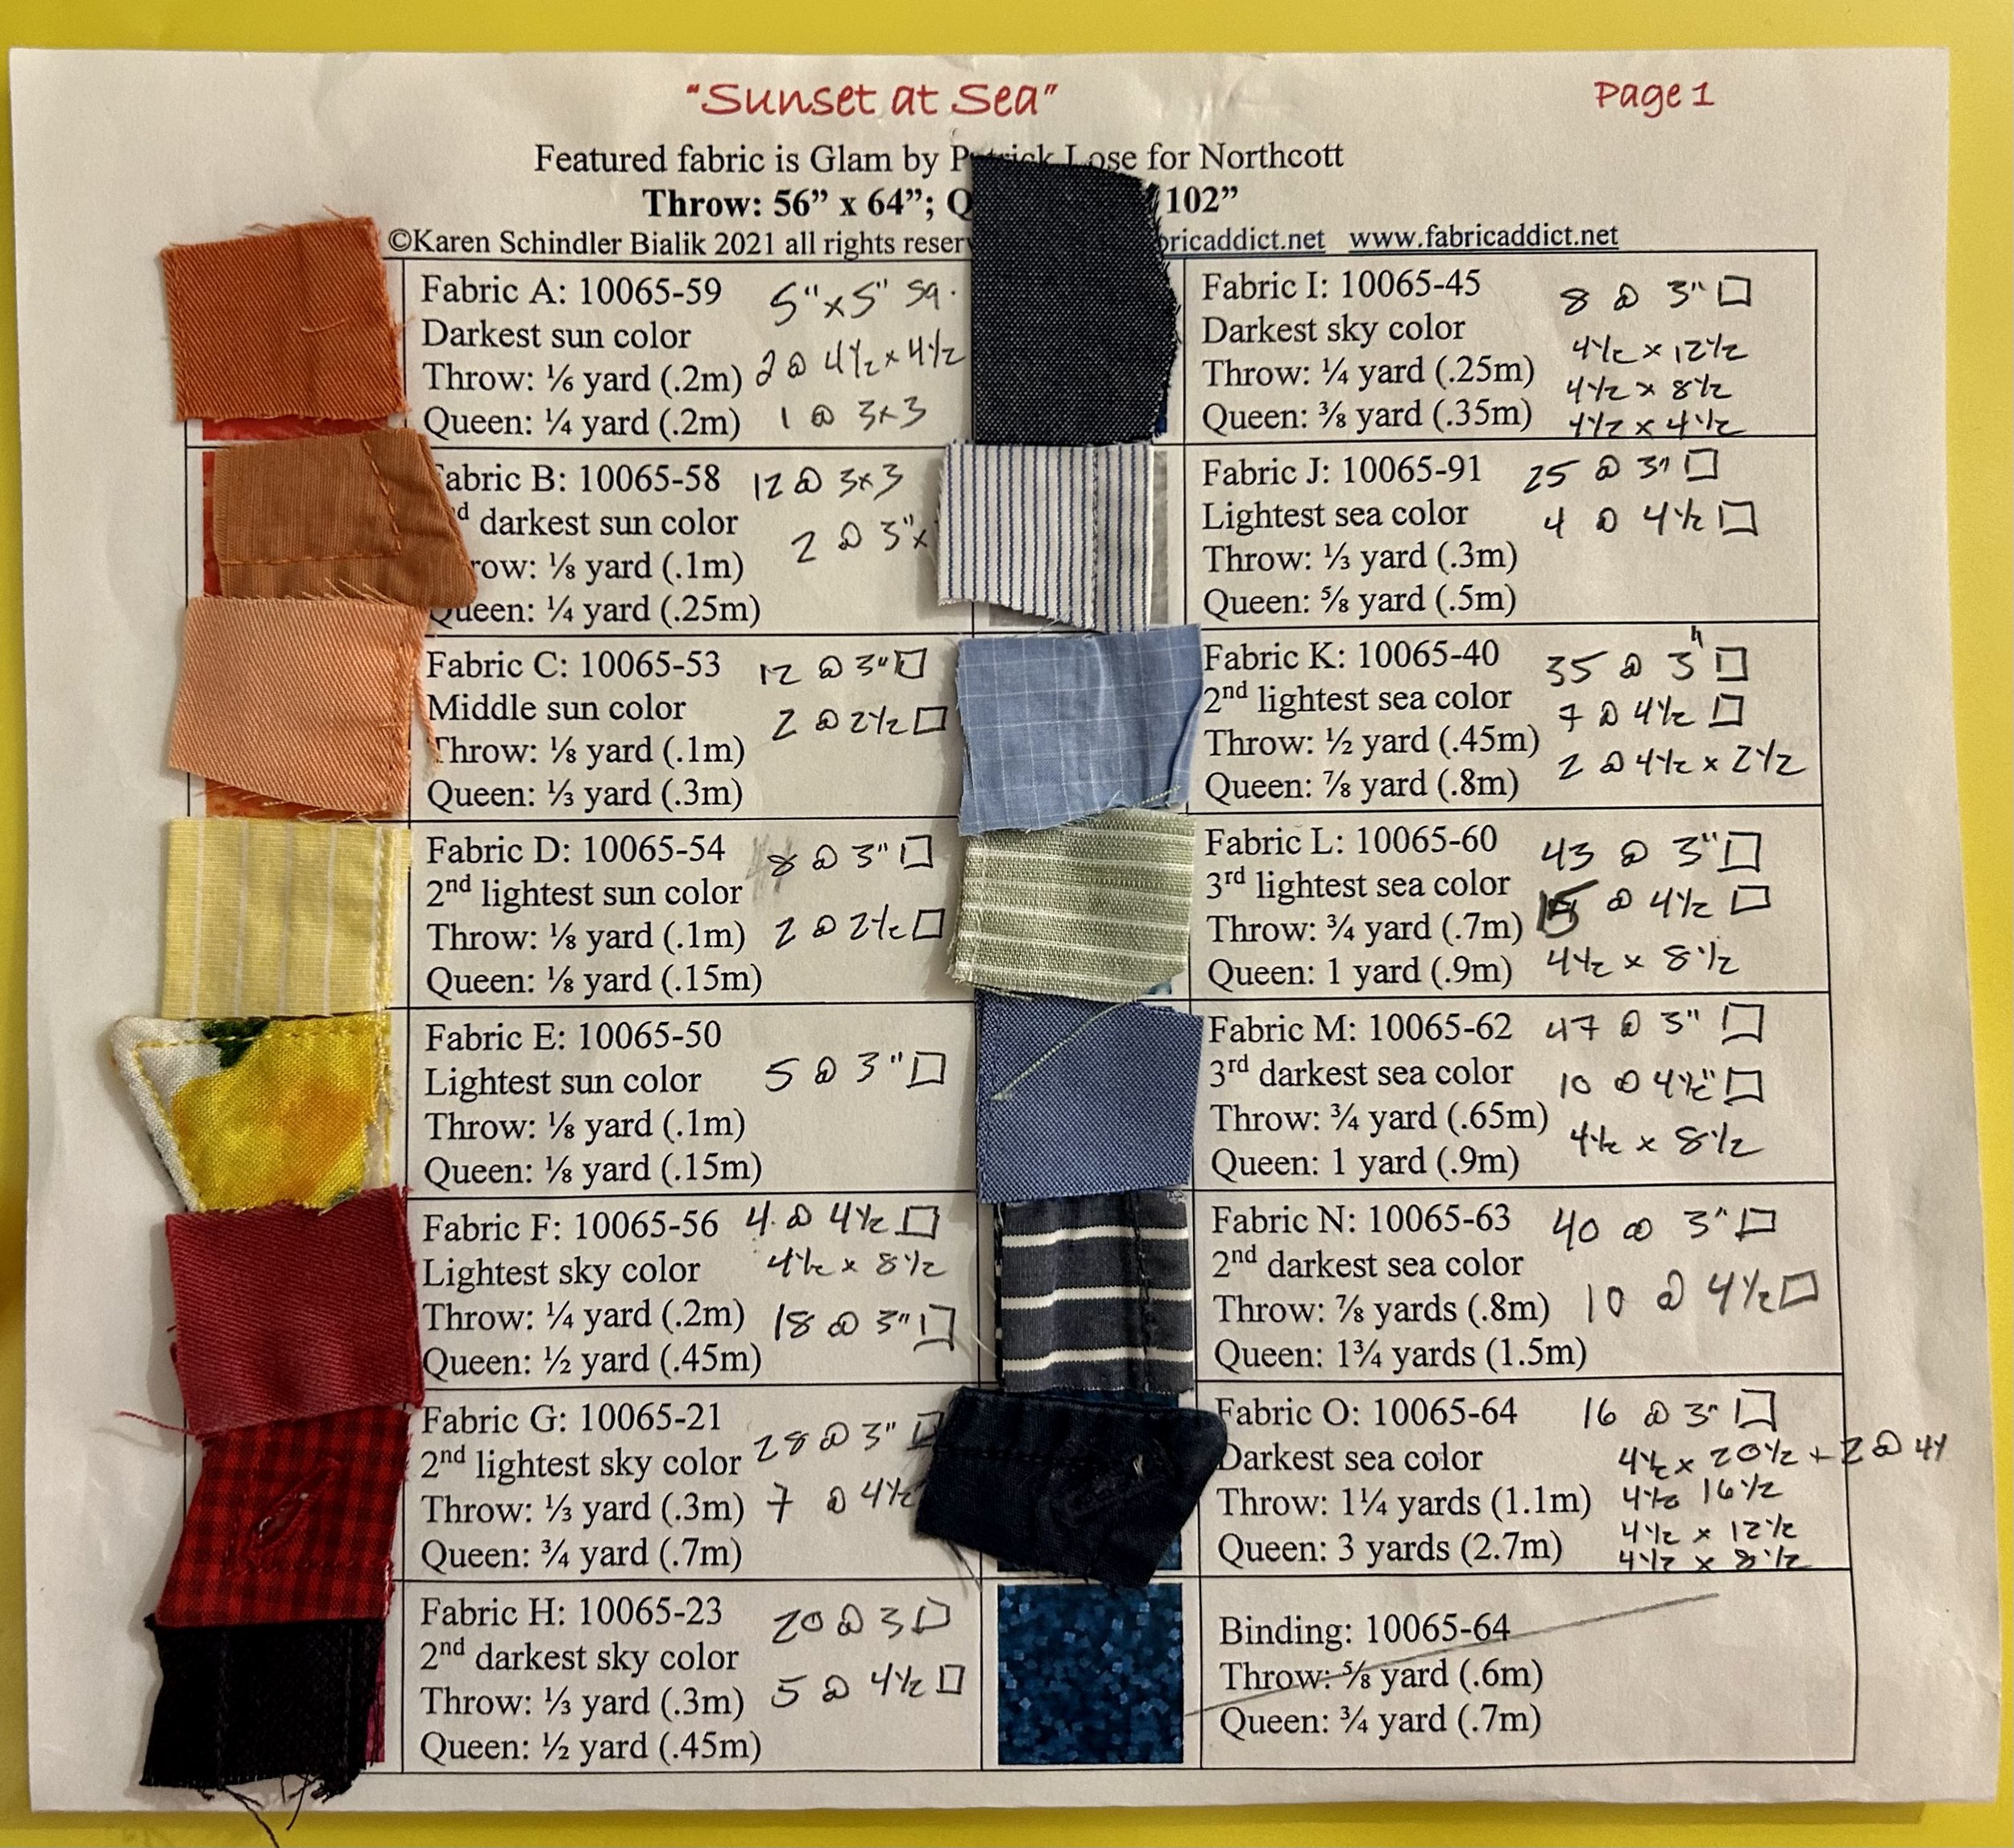 "Sunset at Sea"
Page 1
Featured fabric is Glam by Patrick Lose for Northcott
Throw: 56" x 64"; Q 102"
©Karen Schindler Bialik 2021 all rights reserv bricaddict.net www.fabricaddict.net
Fabric A: 10065-59 5"x5" sq.
Darkest sun color
Throw: ⅙ yard (.2m) 2 @ 4½ x 4½
Queen: ¼ yard (.2m) 1 @ 3x3
abric B: 10065-58 12 @ 3x3
nd darkest sun color
row: ⅛ yard (.1m) 2 @ 3"x
Queen: ¼ yard (.25m)
Fabric C: 10065-53 12 @ 3" □
Middle sun color 2 @ 2½ □
Throw: ⅛ yard (.1m)
Queen: ⅓ yard (.3m)
Fabric D: 10065-54 8 @ 3" □
2nd lightest sun color
Throw: ⅛ yard (.1m) 2 @ 2½ □
Queen: ⅛ yard (.15m)
Fabric E: 10065-50
Lightest sun color 5 @ 3" □
Throw: ⅛ yard (.1m)
Queen: ⅛ yard (.15m)
Fabric F: 10065-56 4 @ 4½ □
Lightest sky color 4½ x 8½
Throw: ¼ yard (.2m) 18 @ 3" □
Queen: ½ yard (.45m)
Fabric G: 10065-21 28 @ 3" □
2nd lightest sky color
Throw: ⅓ yard (.3m) 7 @ 4½
Queen: ¾ yard (.7m)
Fabric H: 10065-23 20 @ 3 □
2nd darkest sky color
Throw: ⅓ yard (.3m) 5 @ 4½ □
Queen: ½ yard (.45m)
Fabric I: 10065-45 8 @ 3" □
Darkest sky color 4½ x 12½
Throw: ¼ yard (.25m) 4½ x 8½
Queen: ⅜ yard (.35m) 4½ x 4½
Fabric J: 10065-91 25 @ 3" □
Lightest sea color 4 @ 4½ □
Throw: ⅓ yard (.3m)
Queen: ⅝ yard (.5m)
Fabric K: 10065-40 35 @ 3" □
2nd lightest sea color 7 @ 4½ □
Throw: ½ yard (.45m)
Queen: ⅞ yard (.8m) 2 @ 4½ x 2½
Fabric L: 10065-60 43 @ 3" □
3rd lightest sea color
Throw: ¾ yard (.7m) 15 @ 4½ □
Queen: 1 yard (.9m) 4½ x 8½
Fabric M: 10065-62 47 @ 3" □
3rd darkest sea color 10 @ 4½" □
Throw: ¾ yard (.65m)
Queen: 1 yard (.9m) 4½ x 8½
Fabric N: 10065-63 40 @ 3" □
2nd darkest sea color
Throw: ⅞ yards (.8m) 10 @ 4½ □
Queen: 1¾ yards (1.5m)
Fabric O: 10065-64 16 @ 3" □
Darkest sea color 4½ x 20½ + 2 @ 4
Throw: 1¼ yards (1.1m) 4½ 16½
4½ x 12½
Queen: 3 yards (2.7m) 4½ x 8½
Binding: 10065-64
Throw: ⅝ yard (.6m)
Queen: ¾ yard (.7m)